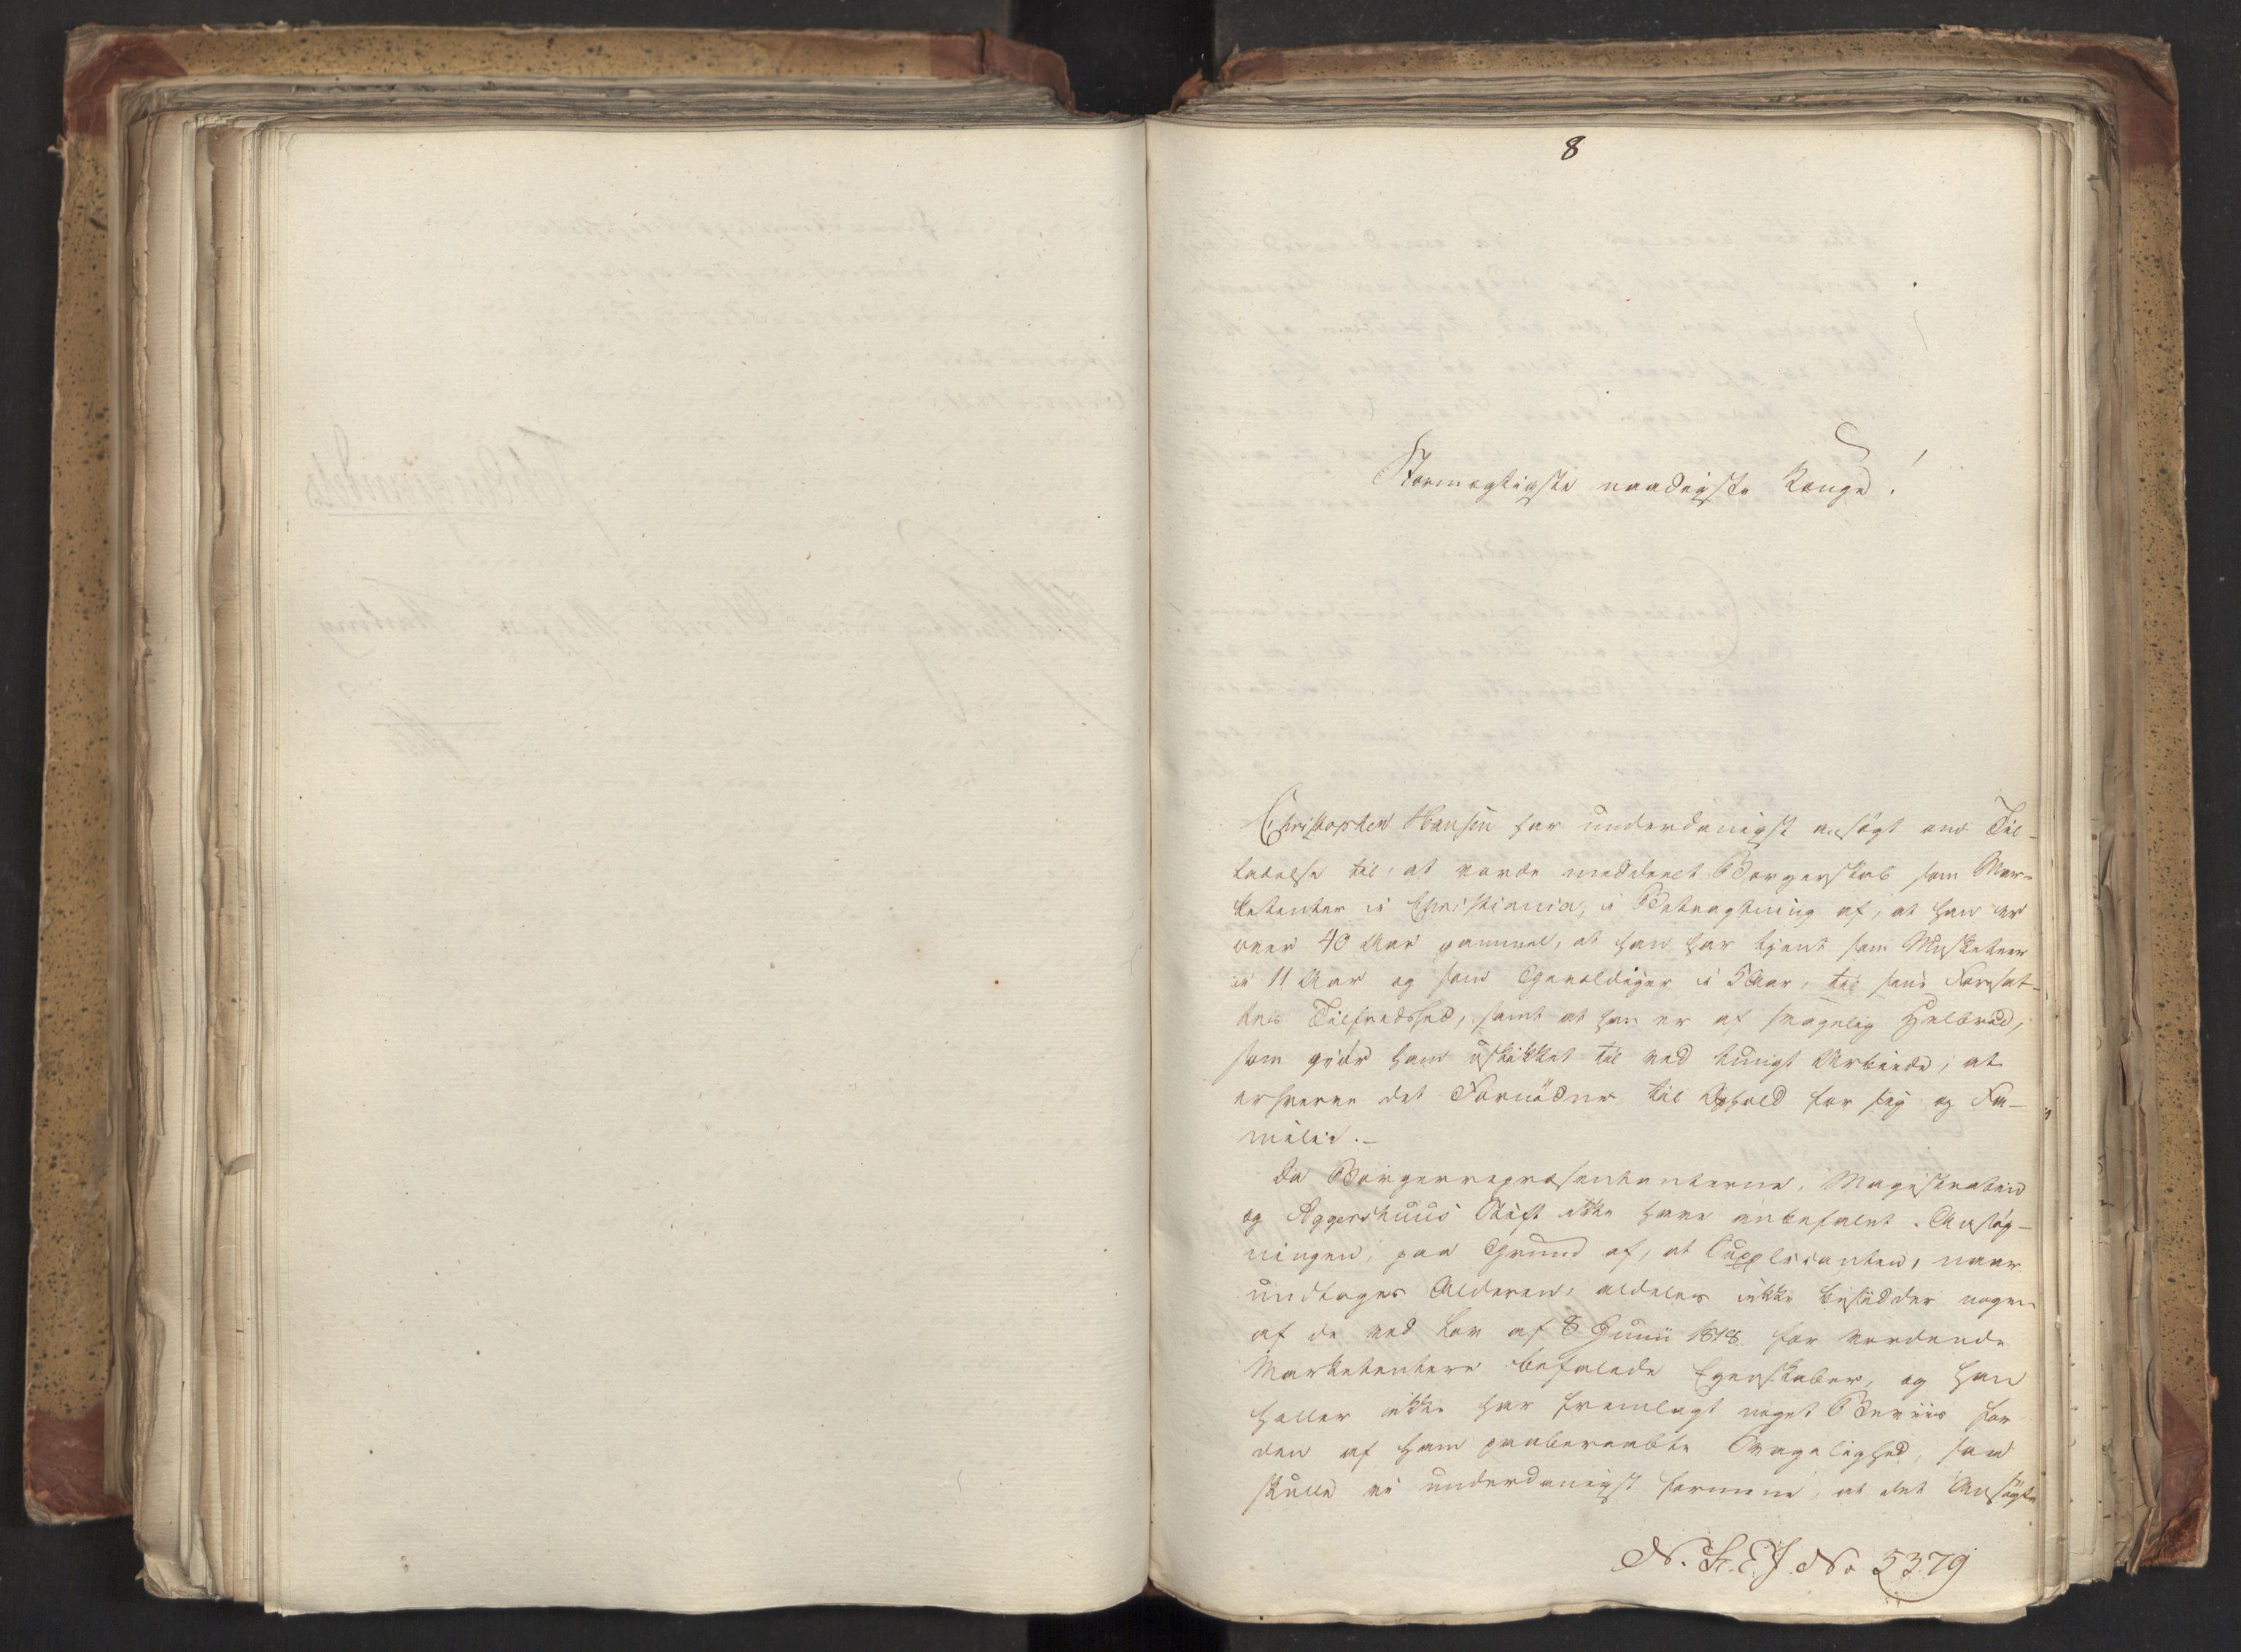 8
Stormægtigste naadigste Konge!
Christopher Hansen har underdanigst ansøgt om Til-
ladelse til, at vorde meddeelt Borgerskab som Mar-
ketenter i Christiania, i Betragtning af, at han er
over 40 Aar gammel, at han har tjent som Musketeer
i 11 Aar og som Gevaldiger i 5 Aar, til sine Foresat-
tes Tilfredshed, samt at han er af svagelig Helbred,
som gjör ham uskikket til ved tungt Arbeide, at
erhverve det Fornödne til Ophold for sig og Fa-
milie.-
Da Borgerrepræsentanterne, Magistraten
og Aggershuus Stift ikke have anbefalet Ansøg-
ningen, paa Grund af, at Supplicanten, naar
undtages Alderen, aldeles ikke besidder nogen
af de ved Lov af 8 Junii 1818 for vordende
Marketentere befalede Egenskaber, og han
heller ikke har fremlagt noget Beviis for
den af ham paaberaabte Svagelighed, saa
skulle vi underdanigst formene, at det Ansøgte
N. St. E. J. No 5379